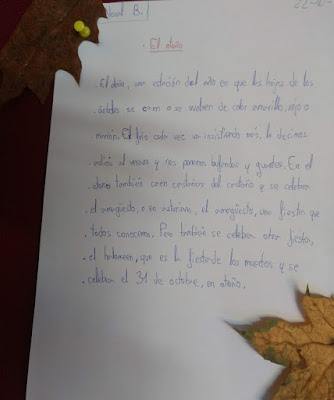 B.
22-10-
El otoño
El otoño, una estación del año en que las hojas de los
árboles se caen o se vuelven de color amarillo, rojo o
marrón. El frío cada vez va insistiendo más, le decimos
adiós al verano y nos ponemos bufandas y guantes. En el
otoño también caen castañas del castaño y se celebra
el amagüesto, o en asturiano, el amagüestu, una fiesta que
todos conocemos. Pero también se celebra otra fiesta,
el haloween, que es la fiesta de los muertos y se
celebra el 31 de octubre, en otoño.